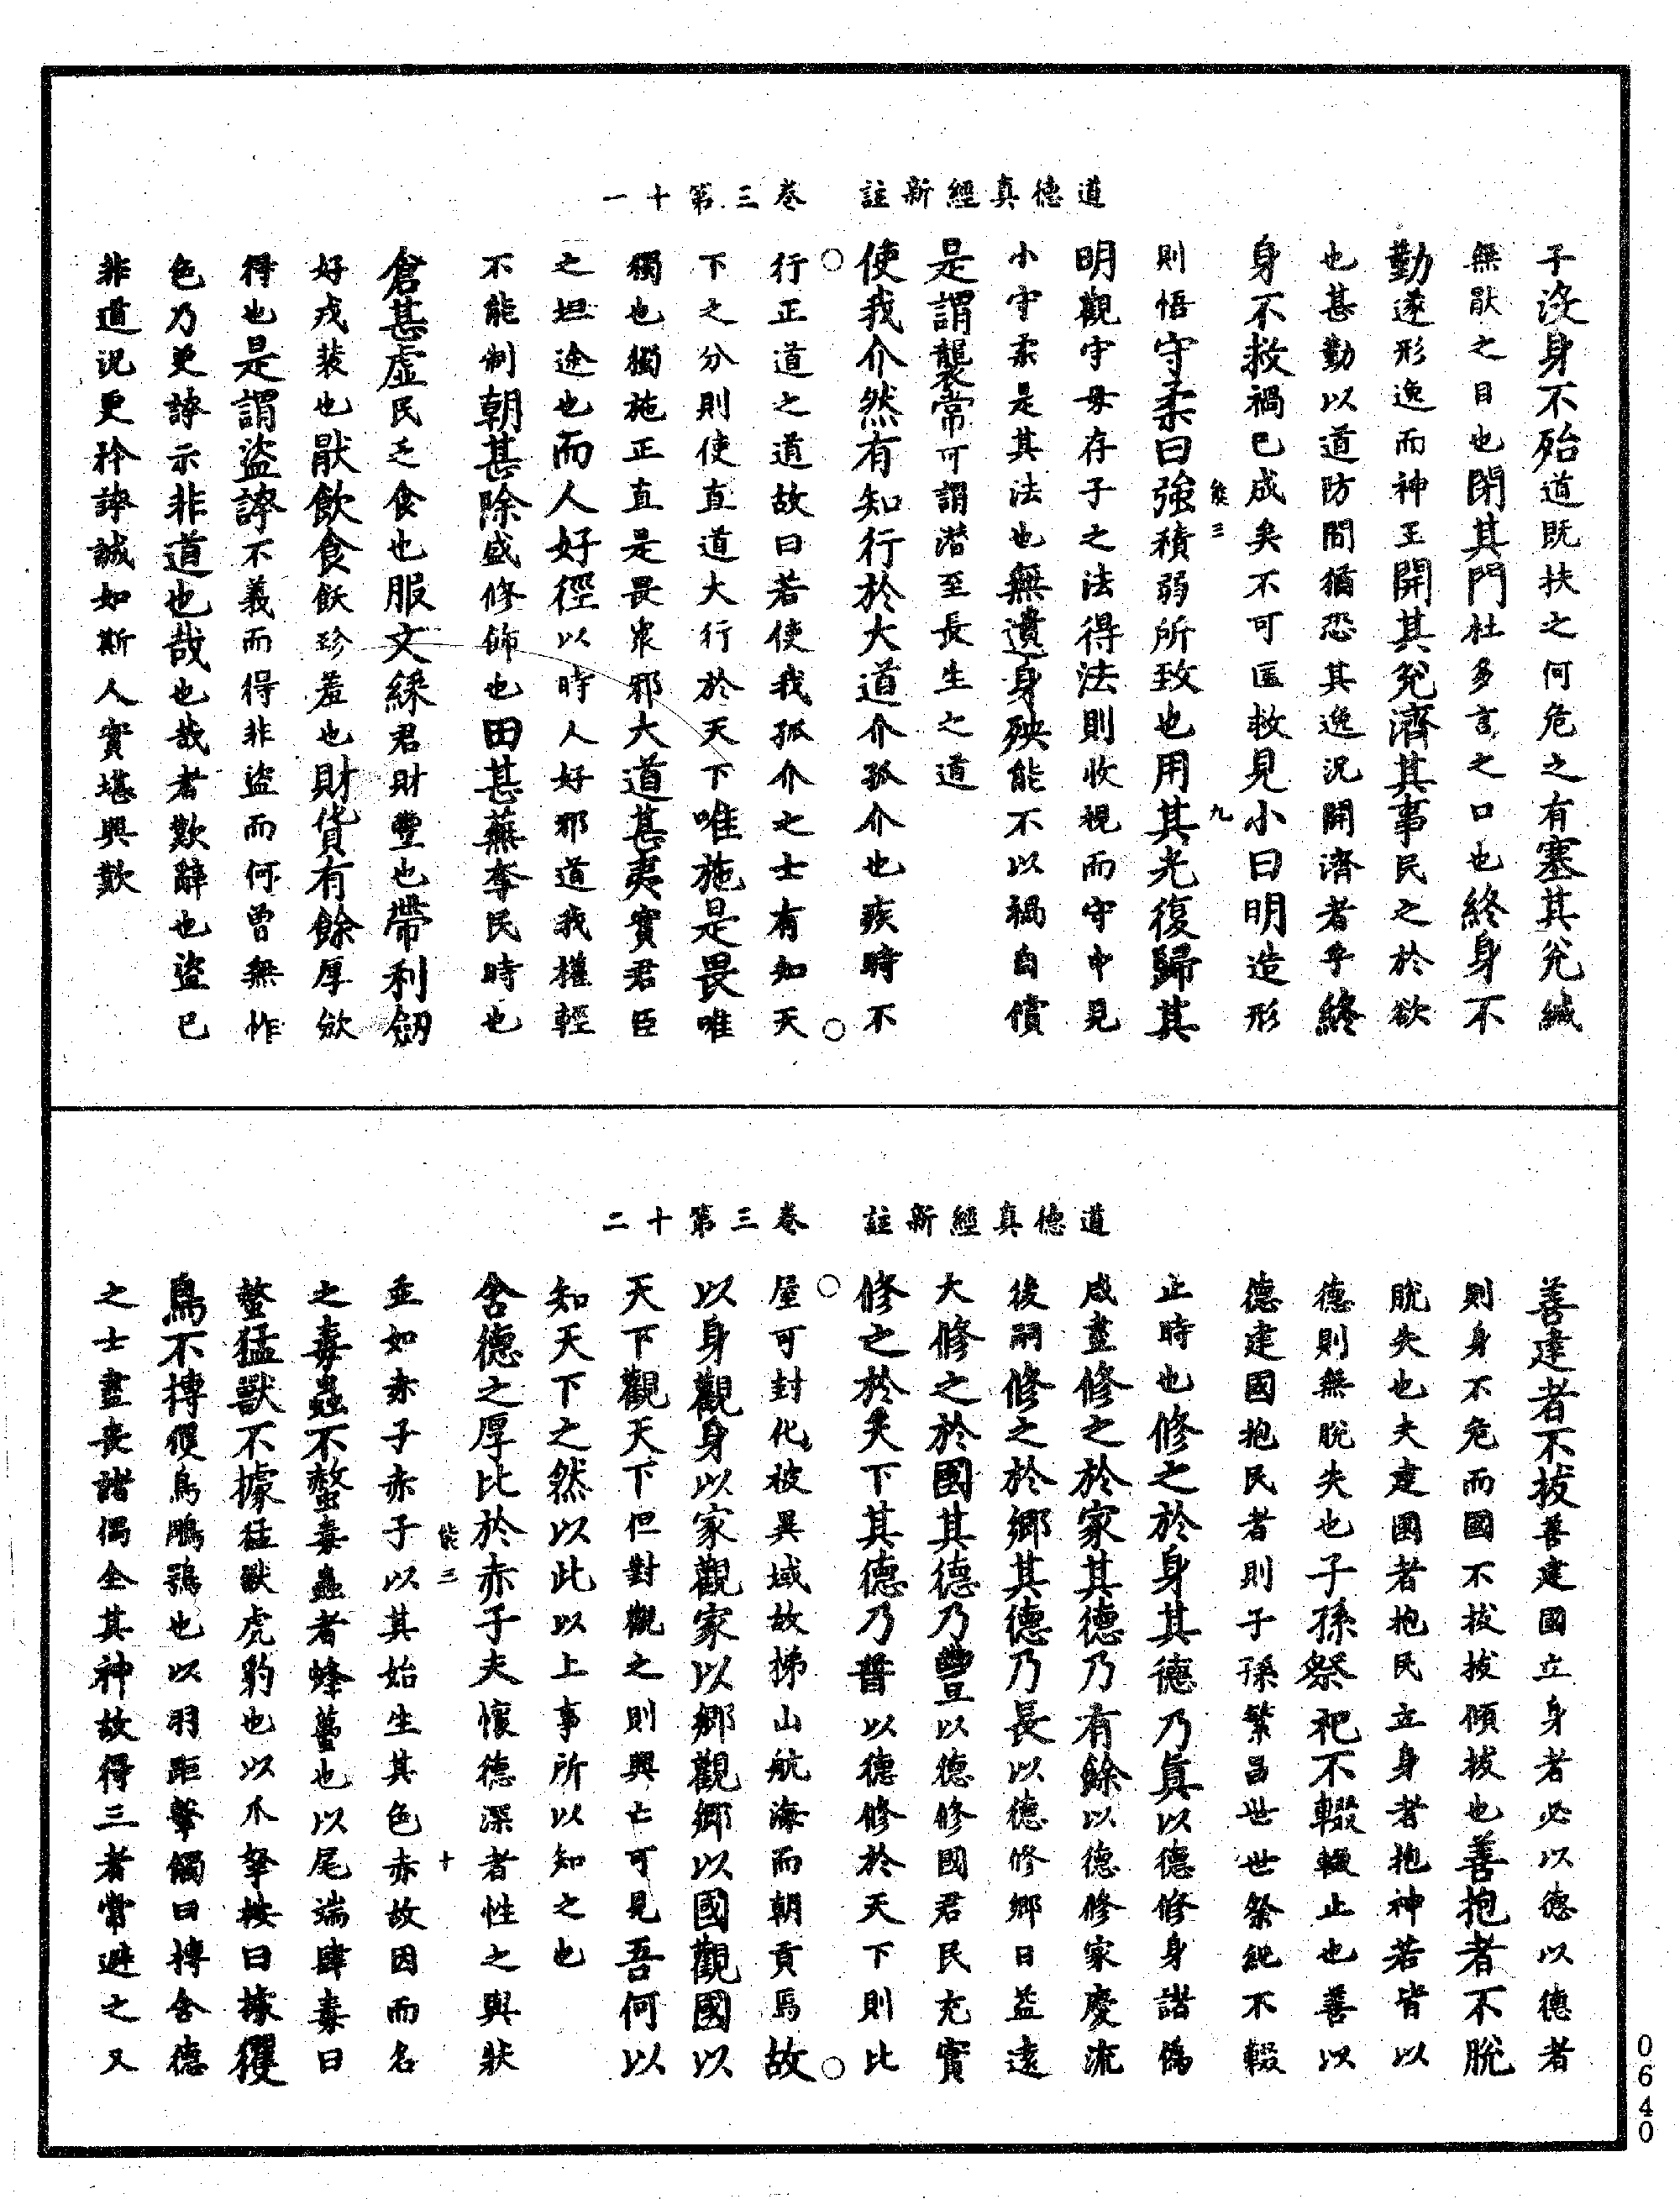 道德真經新註　卷三第十一
子沒身不殆道既扶之何危之有塞其兊緘
無猒之目也閉其門杜多言之口也終身不
勤遂形逸而神王開其兊濟其事民之於欲
也甚勤以道防閑猶恐其逸況開濟者乎終
身不救禍已成矣不可匡救見小曰明造形
則悟守柔曰強積弱所致也用其光復歸其
能三　九
明觀守母存子之法得法則收視而守中見
小守柔是其法也無遺身殃能不以禍自償
是謂襲常可謂潛至長生之道
使我介然有知行於大道介孤介也疾時不
行正道之道故曰若使我孤介之士有知天
下之分則使直道大行於天下唯施是畏唯
獨也獨施正直是畏眾邪大道甚夷實君臣
之坦途也而人好徑以時人好邪道我權輕
不能制朝甚除盛修飾也田甚蕪奪民時也
倉甚虛民乏食也服文綵君財豐也帶利劔
好戎裝也猒飲食飫珍羞也財貨有餘厚斂
得也是謂盜誇不義而得非盜而何曾無怍
色乃更誇示非道也哉也哉者歎辭也盜已
非道況更矜誇誠如斯人實堪興歎
道德真經新註　卷三第十二
善建者不拔善建國立身者必以德以德者
則身不危而國不拔拔傾拔也善抱者不脫
脫失也夫建國者抱民立身者抱神若皆以
德則無脫失也子孫祭祀不輟輟止也善以
德建國抱民者則子孫繁昌世世祭祀不輟
止時也修之於身其德乃真以德修身諸偽
咸盡修之於家其德乃有餘以德修家慶流
後嗣修之於鄉其德乃長以德修鄉日益遠
大修之於國其德乃豐以德修國君民充實
修之於天下其德乃普以德修於天下則比
屋可封化被異域故梯山航海而朝貢焉故
以身觀身以家觀家以鄉觀鄉以國觀國以
天下觀天下但對觀之則興亡可見吾何以
知天下之然以此以上事所以知之也
含德之厚比於赤子夫懷德深者性之與狀
能三　十
並如赤子赤子以其始生其色赤故因而名
之毒蟲不螫毒蟲者蜂蠆也以尾端肆毒曰
螫猛獸不據猛獸虎豹也以爪拏按曰據玃
鳥不搏玃鳥鵰鶚也以羽距擊觸曰搏含德
之士盡喪諸偶全其神故得三者常避之又
0640